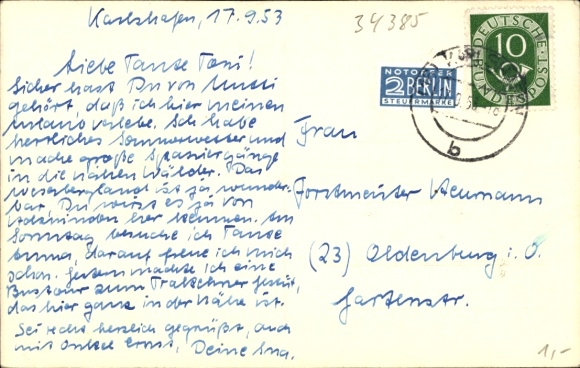 Karlshafen, 17.9.53
34385
Liebe Tante Toni!
Sicher hast Du von Mutti
gehört, daß ich hier meinen
Urlaub verlebe. Ich habe
herrliches Sommerwetter und
mache große Spaziergänge
in die nahen Wälder. Das
Weserbergland ist ja wunder-
bar. Du wirst es ja von
Holzminden her kennen. Am
Sonntag besuche ich Tante
Anna, darauf freue ich mich
schon. Gestern machte ich eine
Bustour zum Trakehner Gestüt,
das hier ganz in der Nähe ist.
Sei recht herzlich gegrüßt, auch
mit Onkel Ernst, Deine
NOTOPFER
2 BERLIN
STEUERMARKE
DEUTSCHE
BUNDESPOST
10
b
Frau
Forstmeister Neumann
(23) Oldenburg i. O.
Gartenstr.
1,-